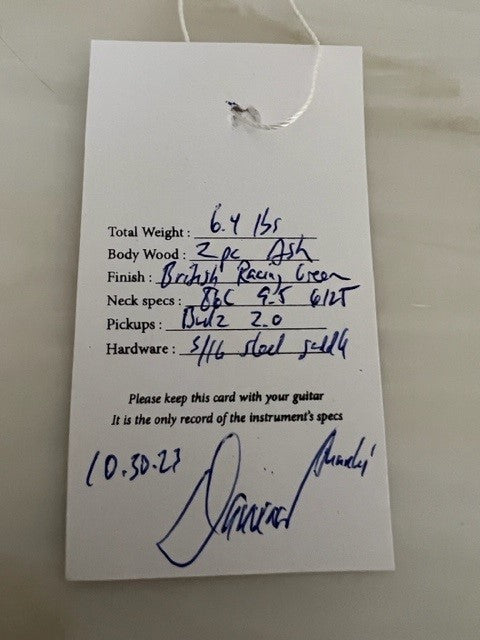 Total Weight : 6.4 lbs
Body Wood : 2 pc Ash
Finish : British Racing Green
Neck specs : 9.5 6125
Pickups : 2.0
Hardware : 5/16 steel saddle
Please keep this card with your guitar
It is the only record of the instrument's specs
10.30.23